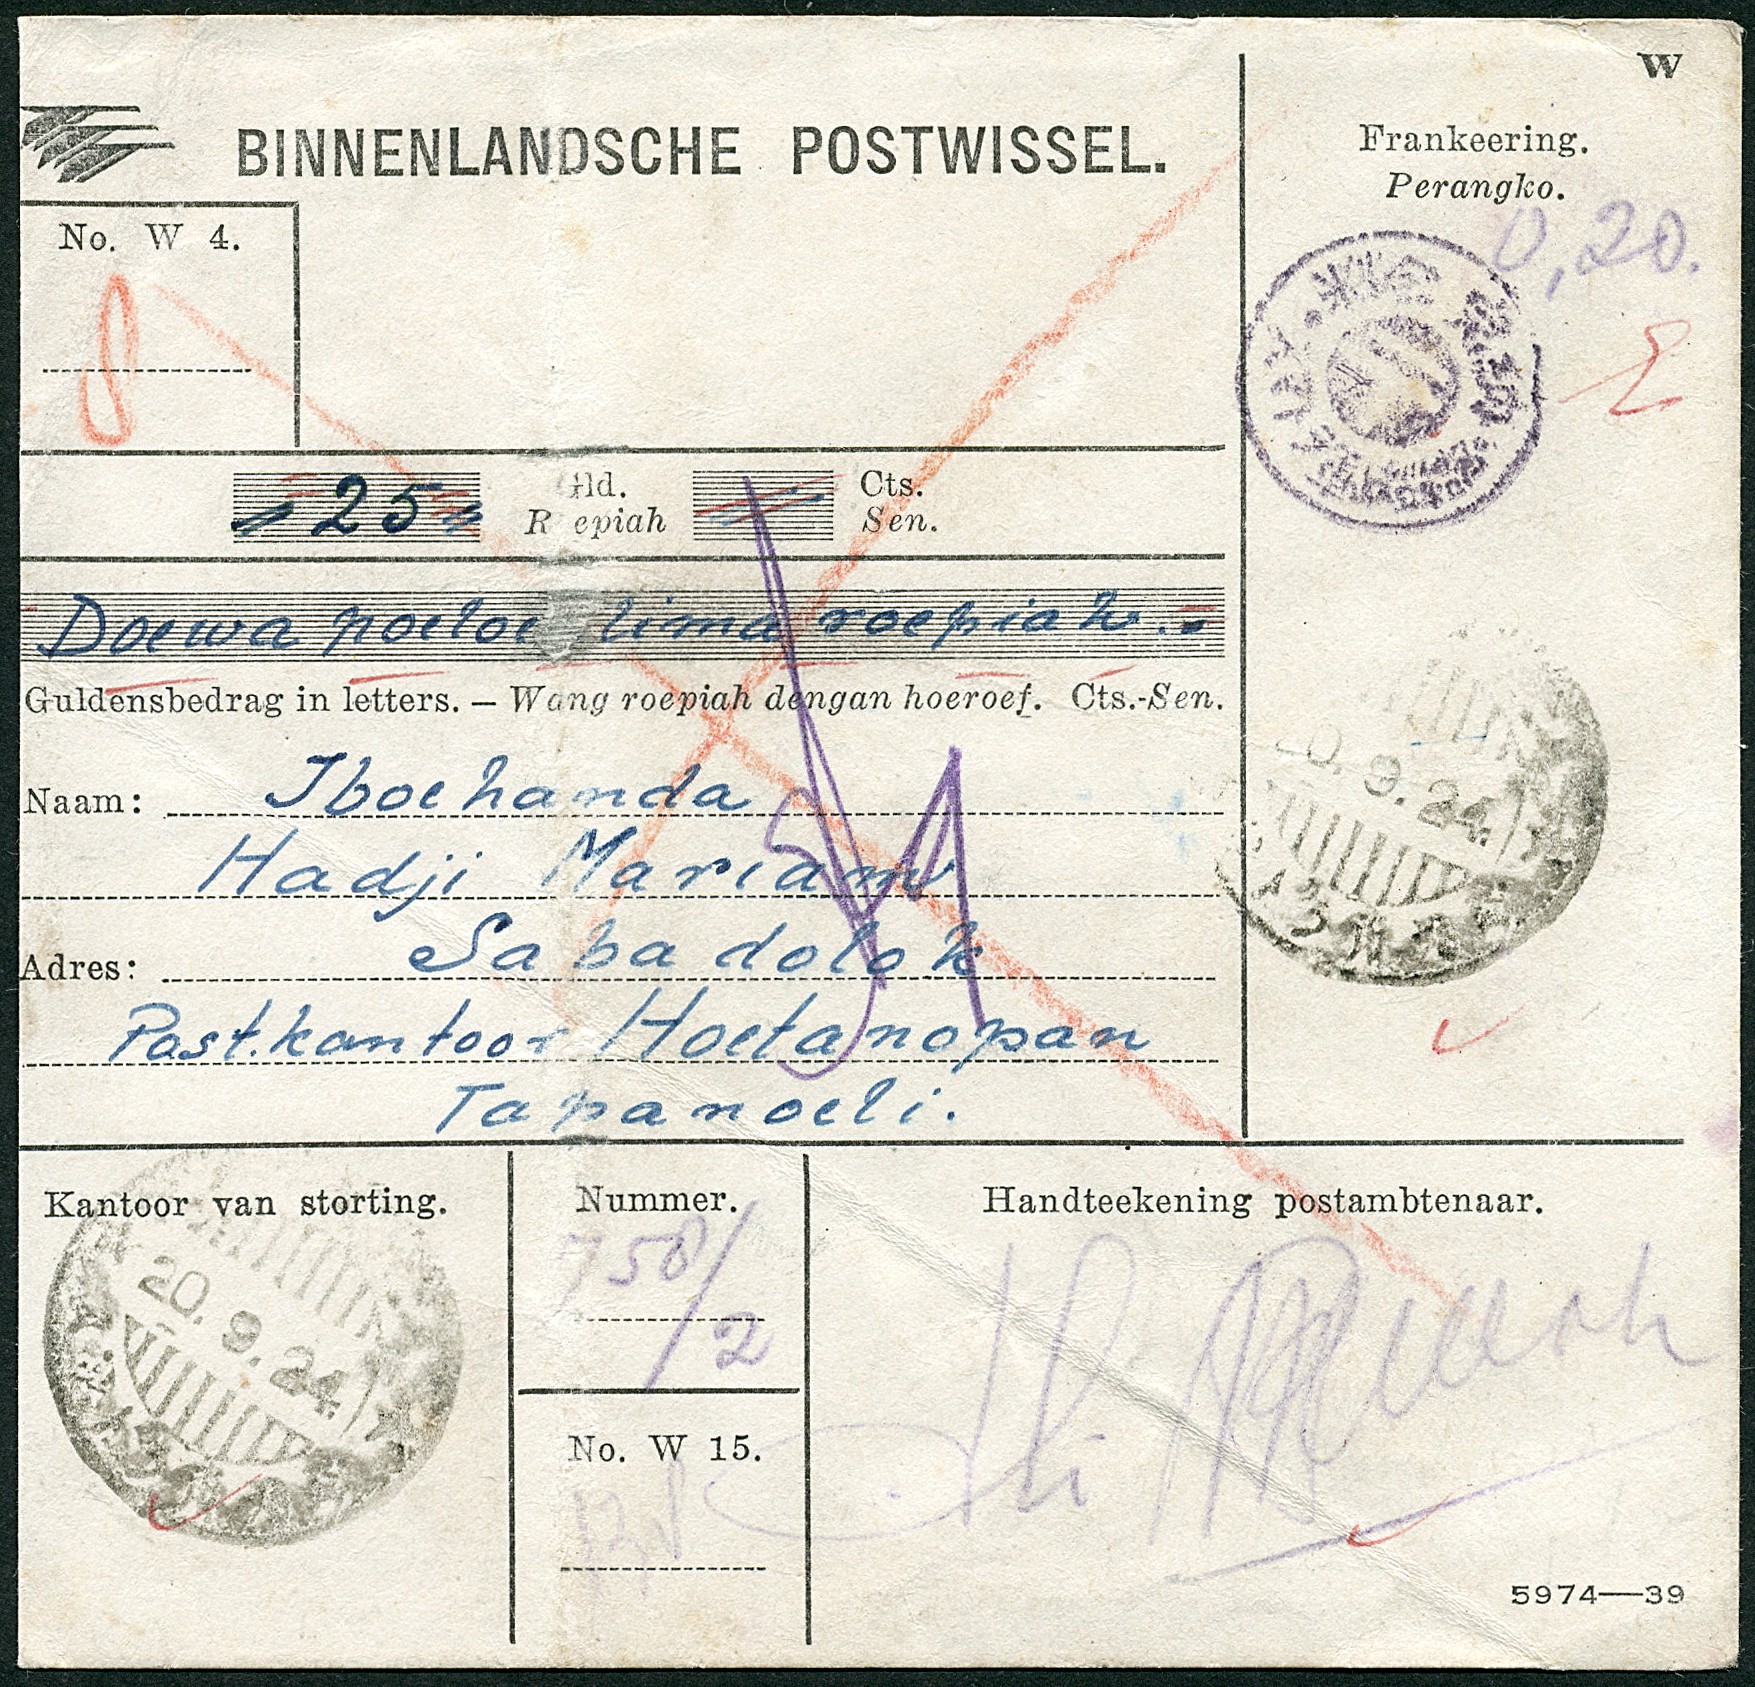 W
BINNENLANDSCHE POSTWISSEL.
Frankeering.
Perangko.
0,20.
No. W 4.
25 Gld. Cts.
Roepiah Sen.
Doewa poeloe lima roepiah.
Guldensbedrag in letters. — Wang roepiah dengan hoeroef. Cts.-Sen.
Naam: Iboehanda
Hadji Mariam
Adres: Saba dolok
Post.kantoor Hoetanopan
Tapanoeli.
20.9.24
Kantoor van storting.
20.9.24
Nummer.
758/2
No. W 15.
Handteekening postambtenaar.
5974—39